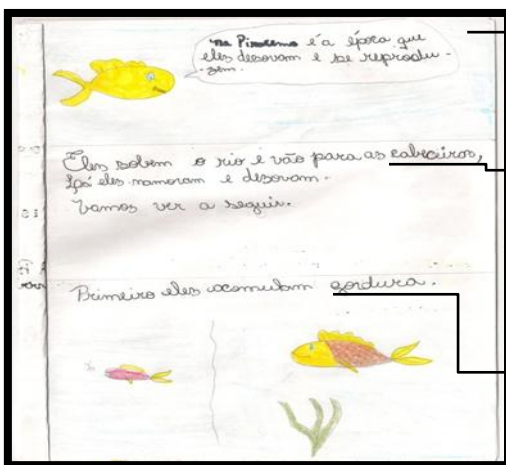 na Piracema é a época que
eles desovam e se reprodu-
-zem.
Eles sobem o rio e vão para as cabeceiras,
eles namoram e desovam.
Vamos ver a seguir.
Primeiro eles acomulam gordura.